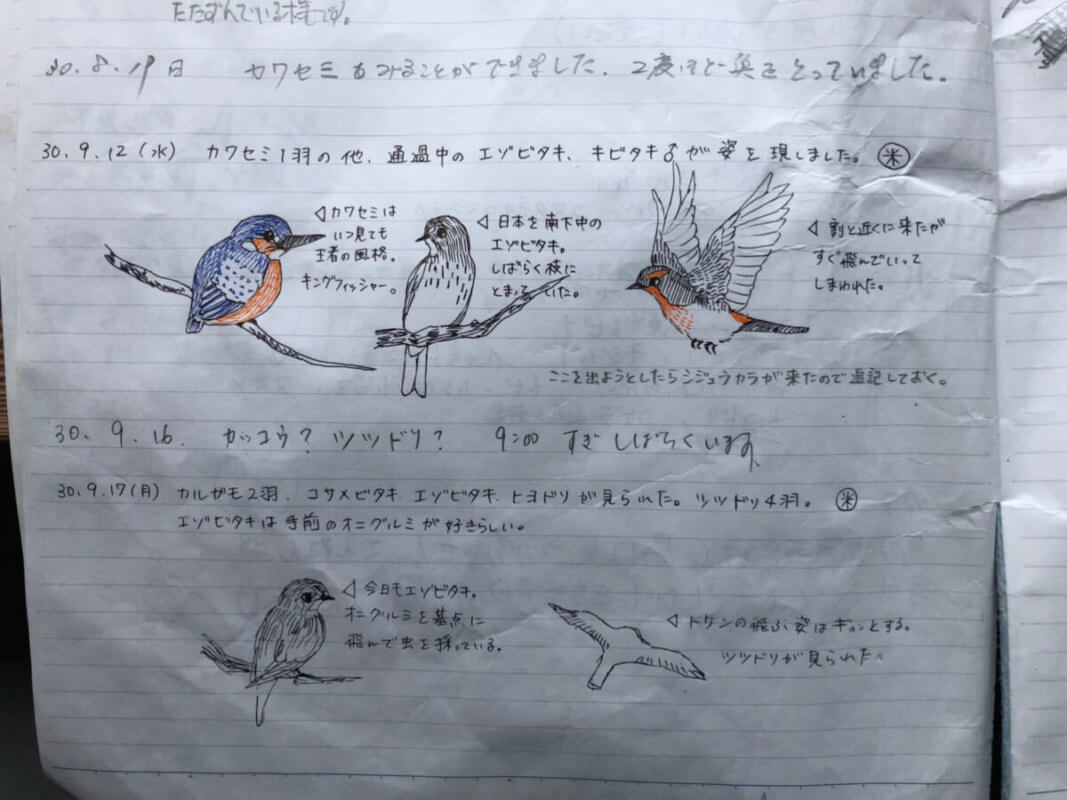 たたずんでいる様です。
30.8.19日 カワセミもみることができました。2度ほど魚をとっていました。
30.9.12(水) カワセミ1羽の他、通過中のエゾビタキ、キビタキ♂が姿を現しました。㊍
◁カワセミは
いつ見ても
王者の風格。
キングフィッシャー。
◁日本を南下中の
エゾビタキ。
しばらく枝に
とまっていた。
◁割と近くに来たが
すぐ飛んでいって
しまわれた。
ここを出ようとしたらシジュウカラが来たので追記しておく。
30.9.16. カッコウ?ツツドリ? 9:00すぎ しばらくいます
30.9.17(月) カルガモ2羽、コサメビタキ、エゾビタキ、ヒヨドリが見られた。ツツドリ4羽。
エゾビタキは手前のオニグルミが好きらしい。
◁今日もエゾビタキ。
オニグルミを基点に
飛んで虫を採っている。
◁トケンの飛ぶ姿はギョッとする。
ツツドリが見られた。